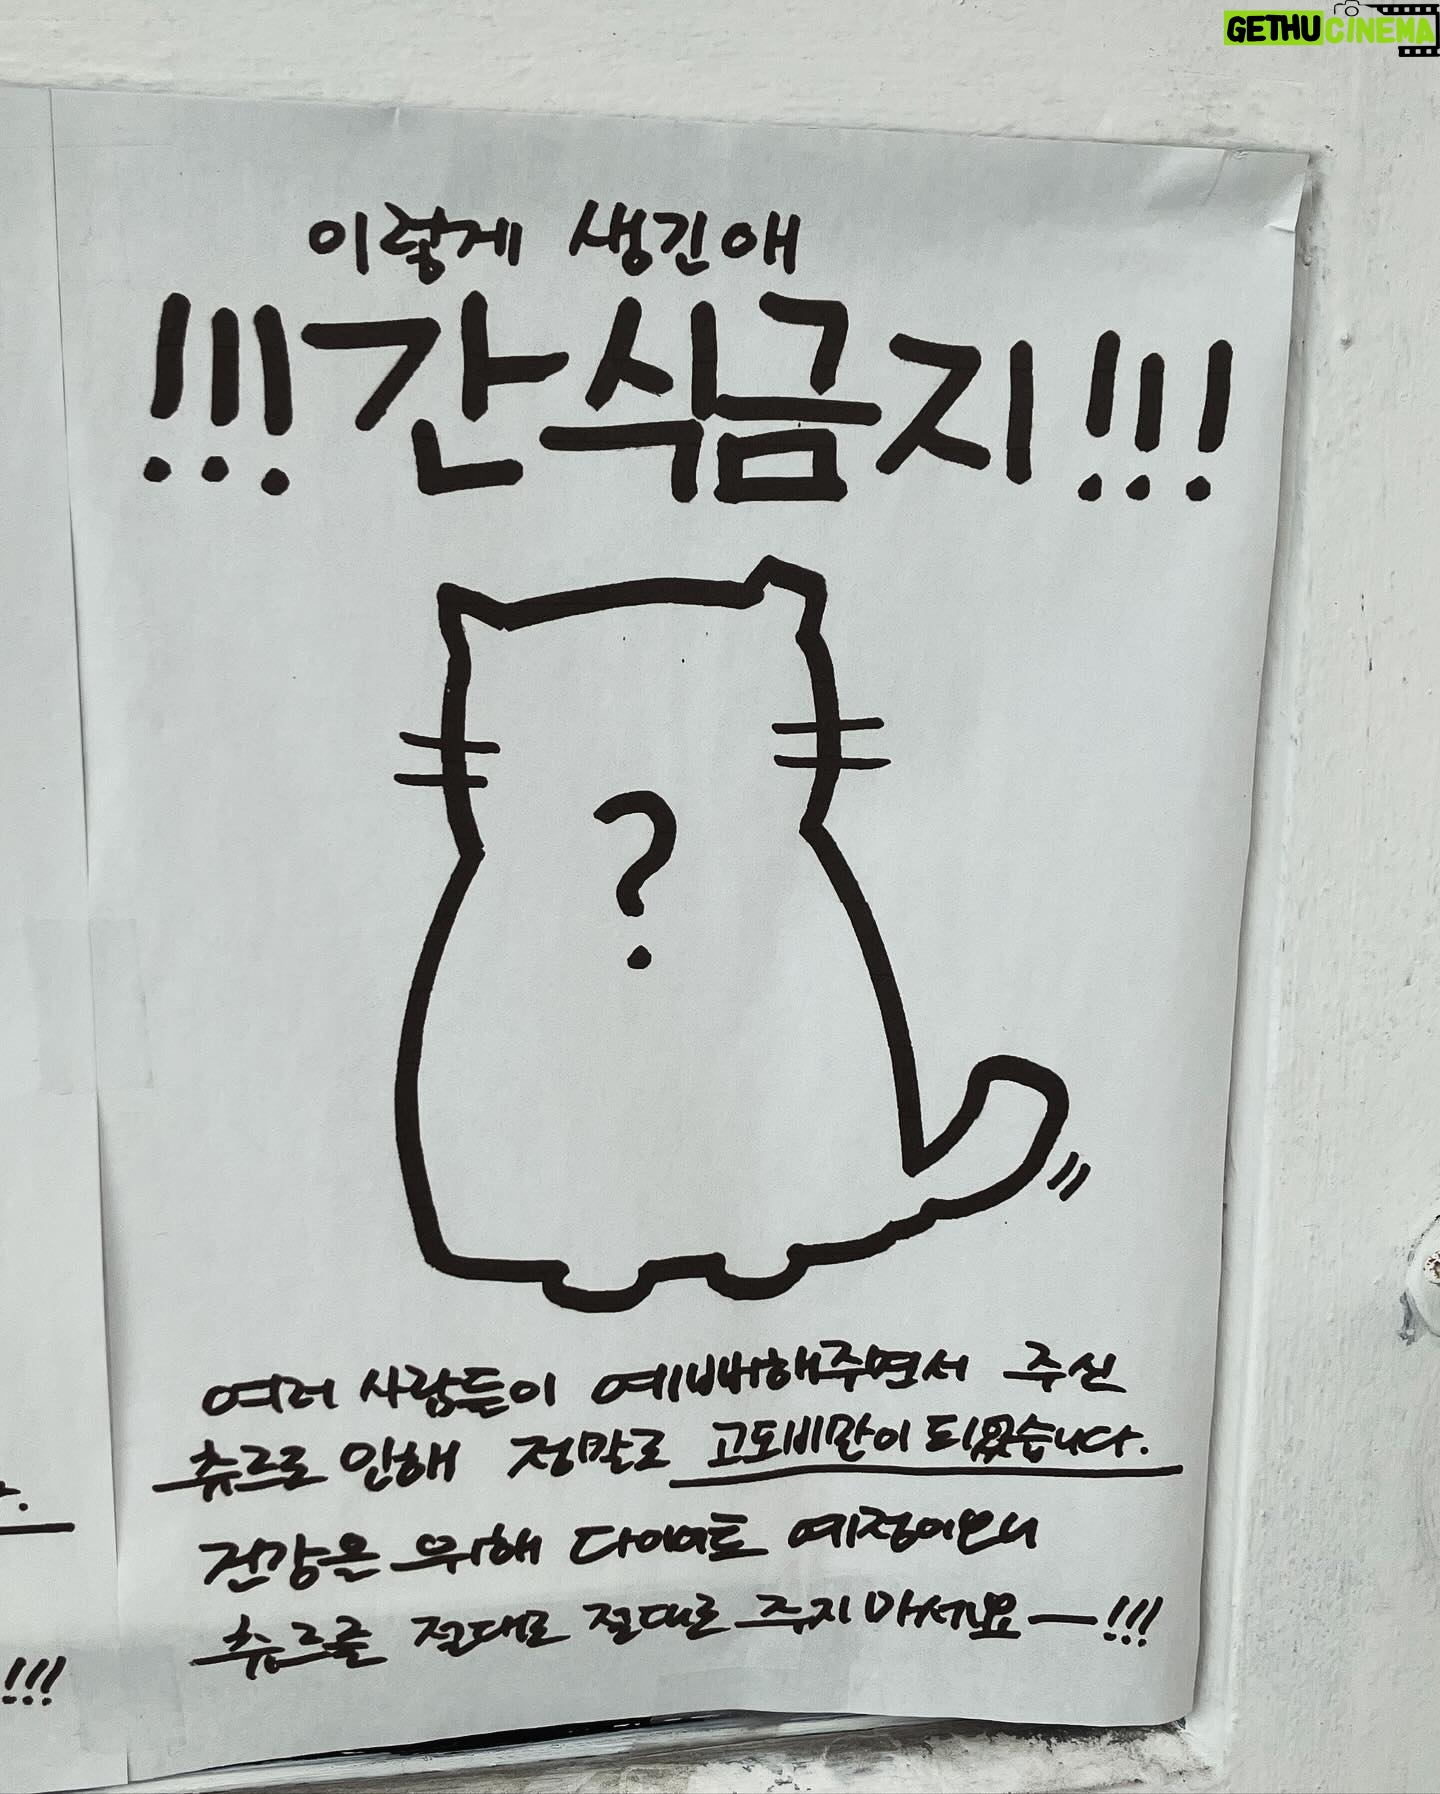 GETHU CINEMA
이렇게 생긴애
!!!간식금지!!!
?
여러 사람들이 예뻐해주면서 주신
츄르로 인해 정말로 고도비만이 되었습니다.
건강을 위해 다이어트 예정이오니
츄르를 절대로 절대로 주지 마세요ー!!!
!!!